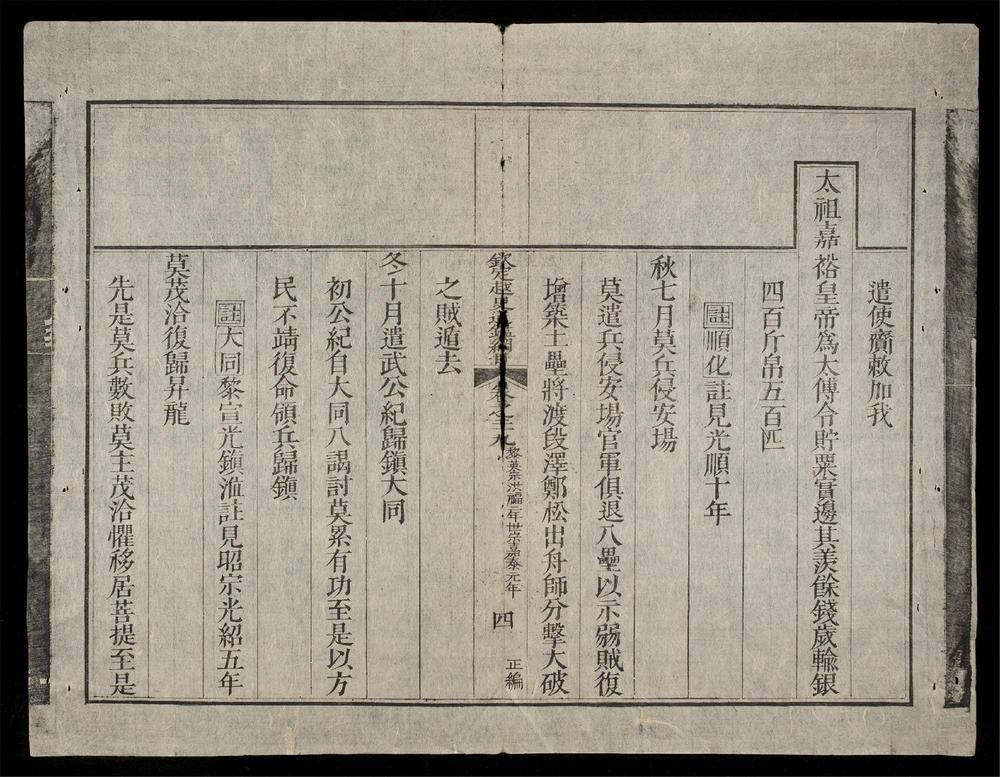 遣使齎敕加我
太祖嘉裕皇帝爲太傅令貯粟實邊其羡餘錢歲輸銀
四百斤帛五百匹
註順化註見光順十年
秋七月莫兵侵安場
莫遣兵侵安場官軍俱退入壘以示弱賊復
增築土壘將渡段澤鄭松出舟師分擊大破
欽定越史通鑑綱目 卷之二十九 黎英宗洪福二年世宗嘉泰元年 四 正編
之賊遁去
冬十月遣武公紀歸鎮大同
初公紀自大同入謁討莫累有功至是以方
民不靖復命領兵歸鎮
註大同黎宣光鎮涖註見昭宗光紹五年
莫茂洽復歸昇龍
先是莫兵數敗莫主茂洽懼移居菩提至是